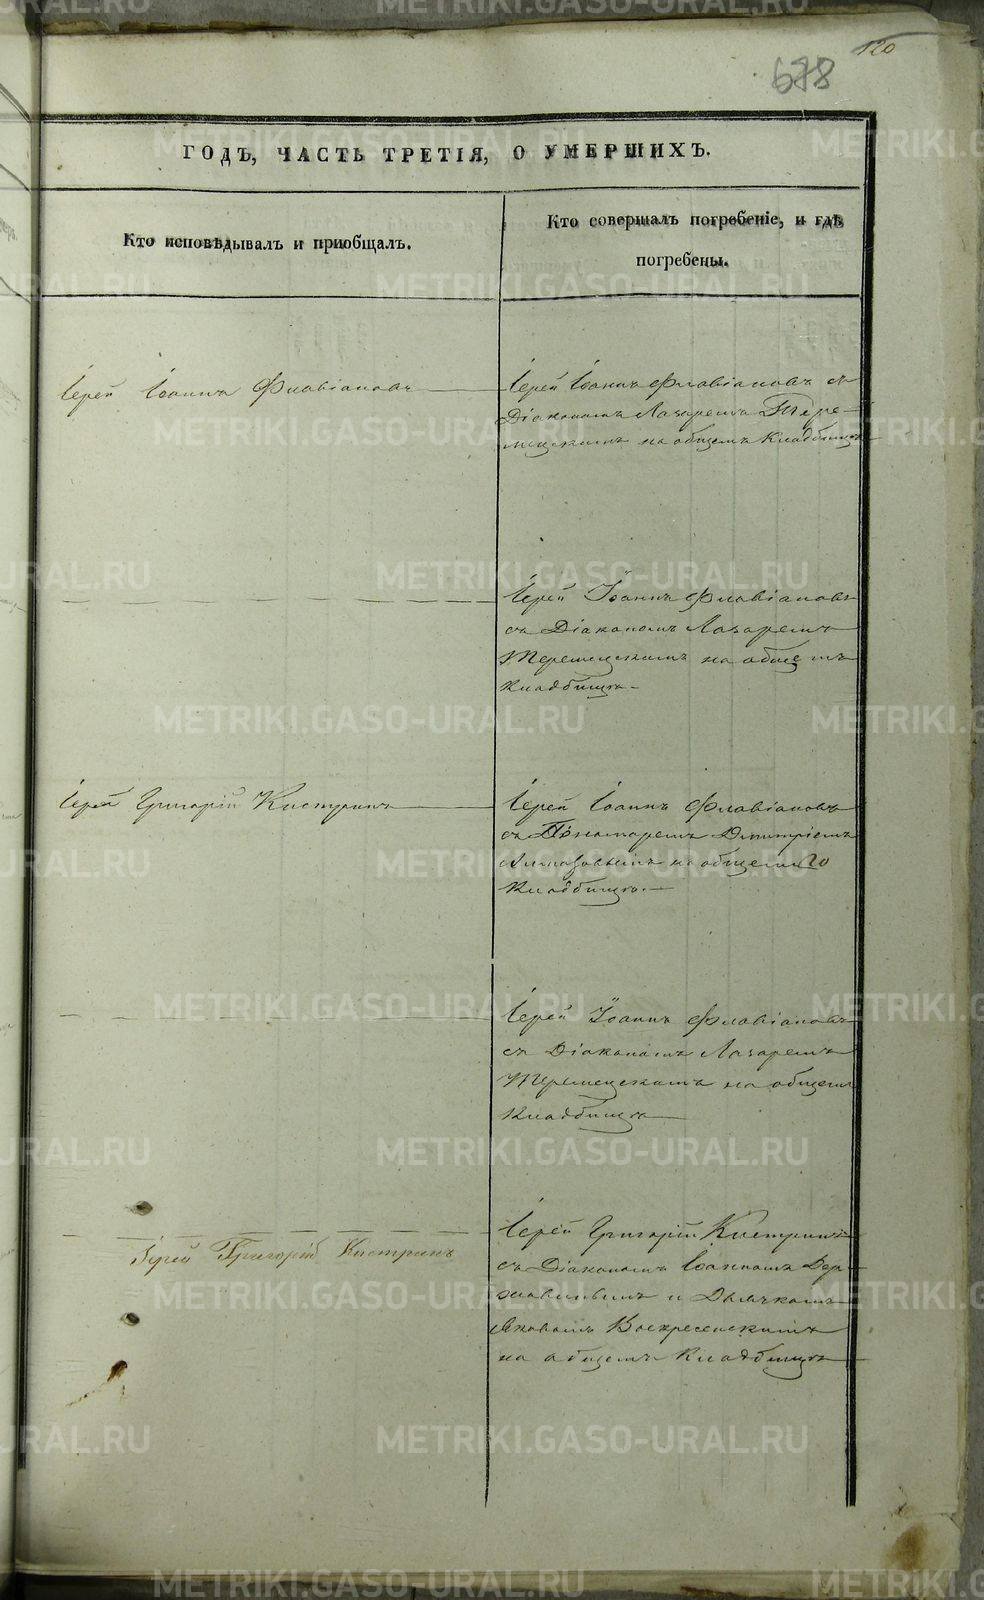 120
678
ГОДЪ, ЧАСТЬ ТРЕТІЯ, О УМЕРШИХЪ.
Кто исповѣдывалъ и приобщалъ.
Кто совершалъ погребеніе, и гдѣ
погребены.
Іерей Іоаннъ Флавіановъ
Іерей Іоаннъ Флавіановъ съ
Діакономъ Лазаремъ Тере-
мецскимъ на общемъ Кладбищѣ
Іерей Іоаннъ Флавіановъ
съ Діакономъ Лазаремъ
Теремецскимъ на общемъ
Кладбищѣ.
Іерей Григорій Кистринъ
Іерей Іоаннъ Флавіановъ
съ Пономаремъ Димитріемъ
Алмазовымъ на общемъ
Кладбищѣ.
Іерей Іоаннъ Флавіановъ
съ Діакономъ Лазаремъ
Теремецскимъ на общемъ
Кладбищѣ
Іерей Григорій Кистринъ
Іерей Григорій Кистринъ
съ Діакономъ Іоанномъ Дер-
жавинымъ и Дьячкомъ
Яковомъ Воскресенскимъ
на общемъ Кладбищѣ
METRIKI.GASO-URAL.RU